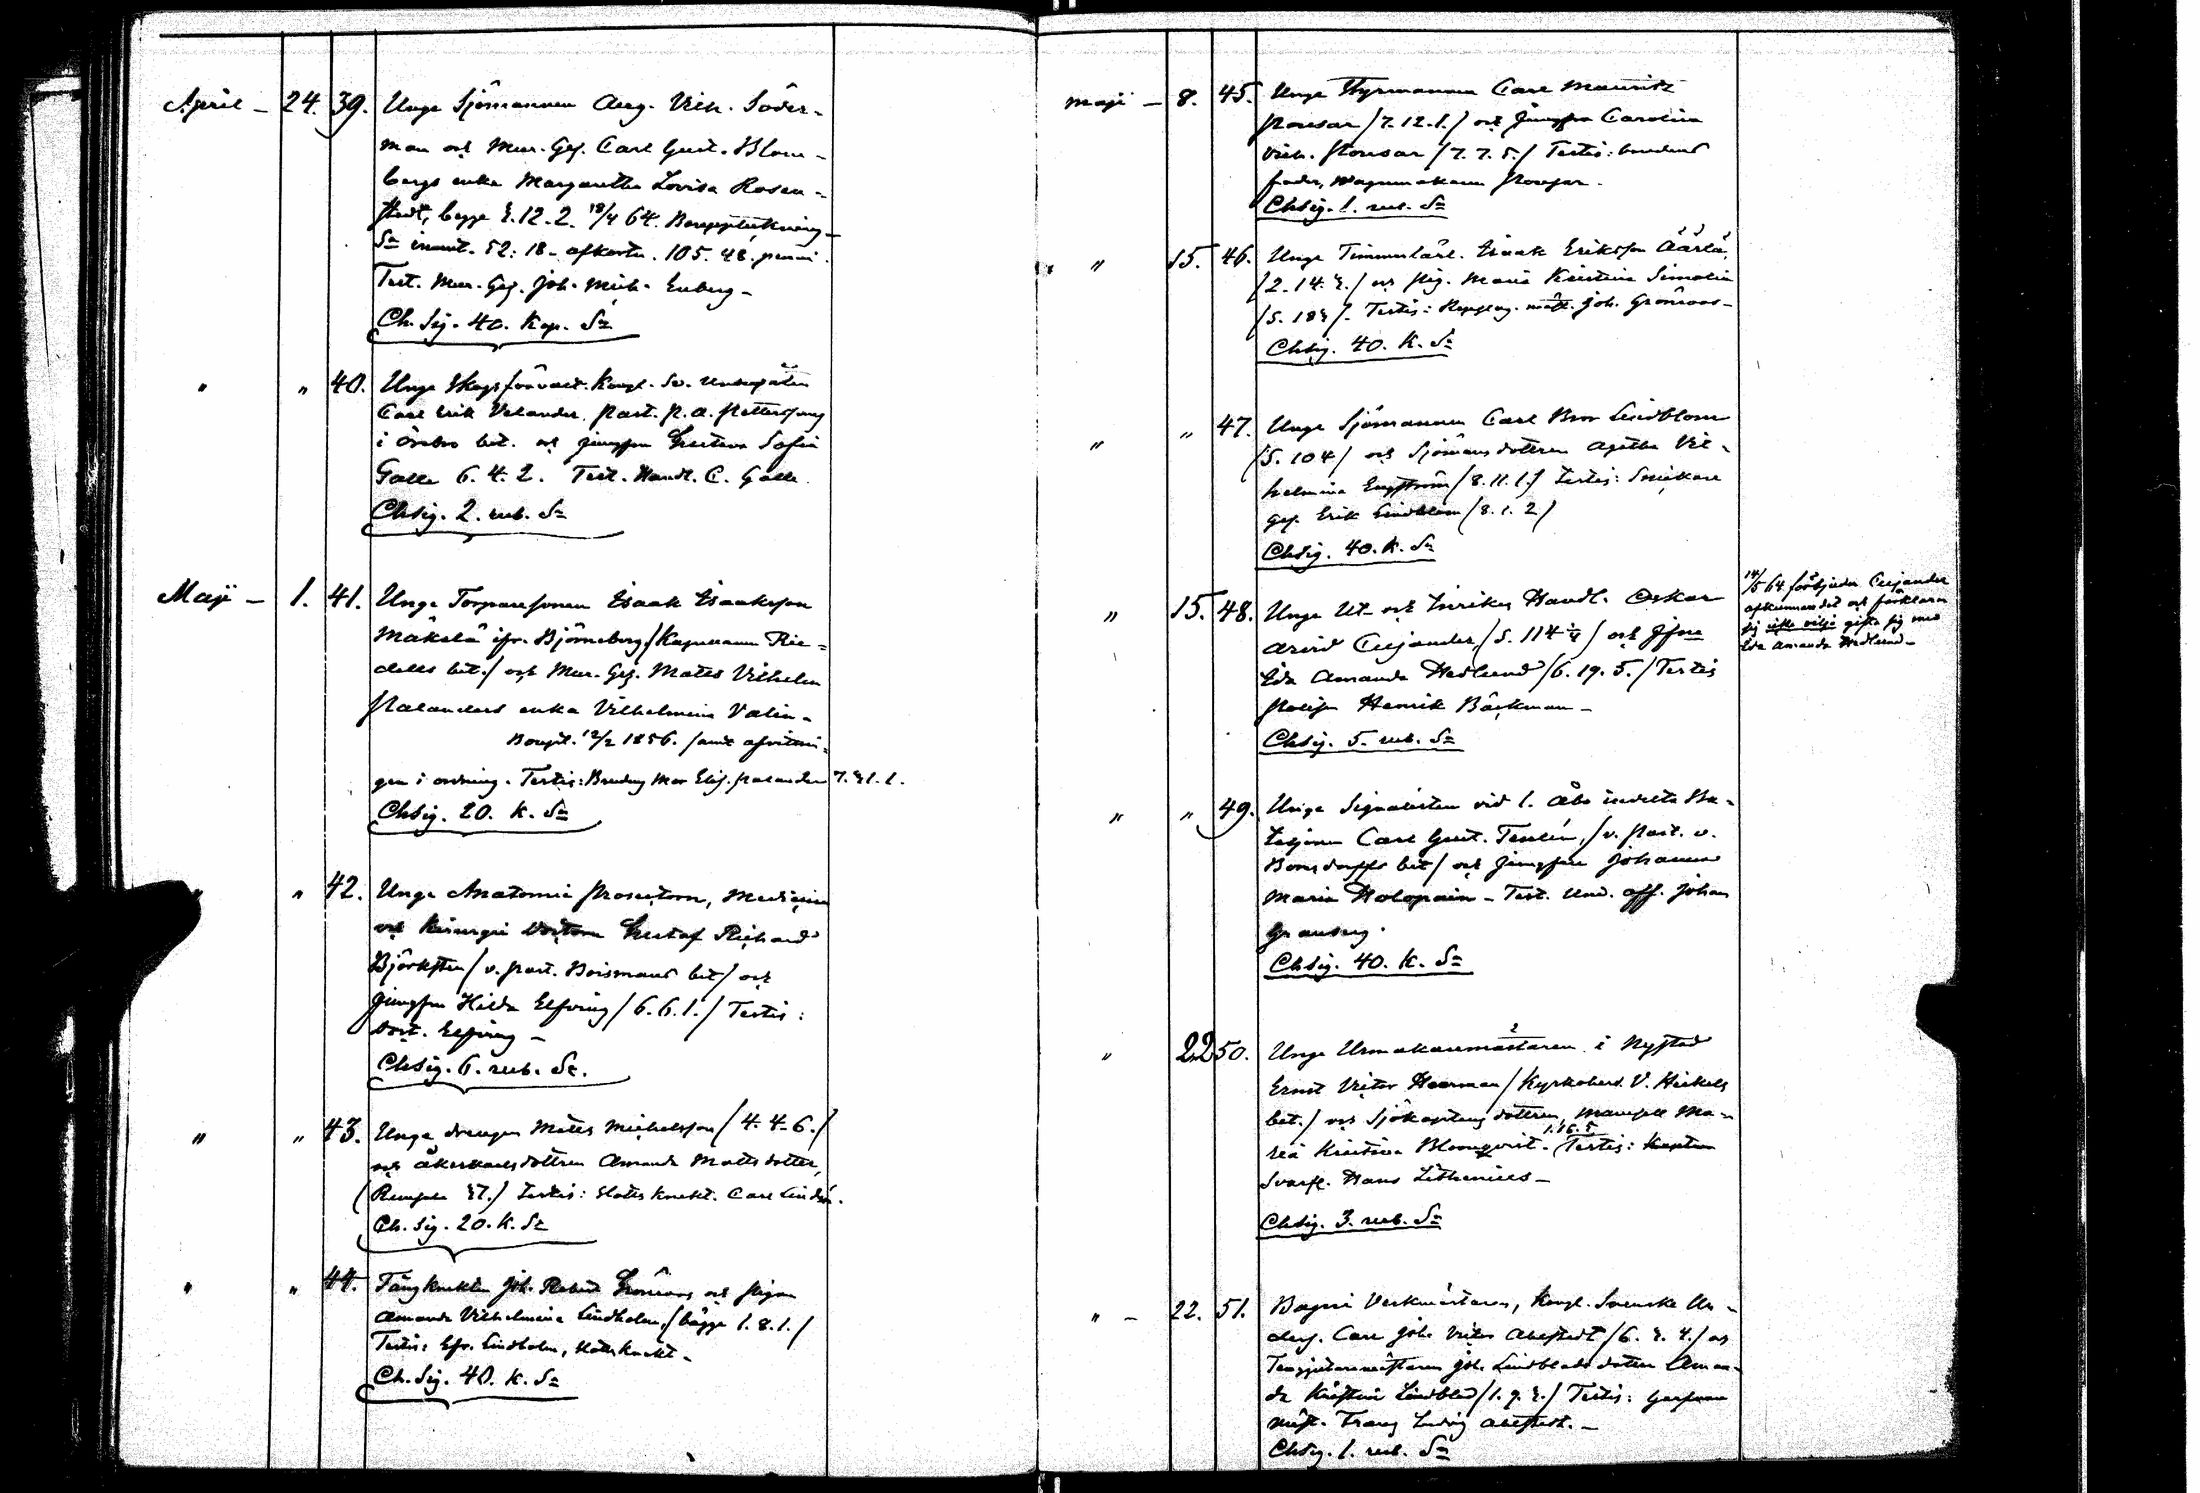 April - 24. 39. Unge Sjömannen Aug. Vilh. Söder-
man och Mur. Ges. Carl Gust. Blom-
bergs enka Margaretha Lovisa Rosen-
stedt, begge 4.12.2. 18/4 64. Bouppteckning
Sa inent. 52: 18 - afkorta. 105. 48. penni.
Test. Mur. Ges. Joh. Mich. Enberg -
Ch. Sig. 40. Kop. Sr
" " 40. Unge Skogsförvalt. Kongl. Sv. Undersåten
Carl Erik Velander, Past. P. A. Petterssons
i Örebro bet. och jungfrun Gustava Sofia
Galle 6. 4. 2. Test. Handl. C. Galle.
Chsig. 2. rub. Sr
Maji - 1. 41. Unge Torparesonen Isaak Isaaksson
Mäkelä ifr. Björneborg /Kapellanen Rie-
dells bet./ och Mur. Ges. Mats Vilhelm
Palanders enka Vilhelmina Valin-
Boupt. 12/2 1856. samt afvittrin-
gen i ordning. Testis: Brudens Mor Elis. Palander 7. 41. 1.
Chsig. 20. K. Sr
" " 42. Unge Anatomie Prosectorn, Medicine
och Kirurgie Doctorn Gustaf Richard
Björksten /v. Past. Boismans bet/ och
jungfrun Hilda Elfving /6. 6. 1./ Testis:
Doct. Elfving -
Chsig. 6. rub. Sr.
" " 43. Unge drengen Mats Michelsson /4. 4. 6./
och åkerkarlsdottren Amanda Mattsdotter,
(Rungala 47.) Testis: Slottsknekt. Carl Lindén.
Ch. Sig. 20. K. Sr
" " 44. Fångknekten Joh. Robert Grönroos och pigan
Amanda Vilhelmina Lindholm, /bägge 1. 8. 1./
Testis: Efr. Lindholm, Slottsknekt -
Ch. Sig. 40. K. Sr
Maji - 8. 45. Unge Styrmannen Carl Mauritz
Ponsar /7. 12. 1./ och jungfrun Carolina
Vilh. Ponsar /7. 7. 5./ Testis: brudens
fader, Wagnmakaren Ponsar.
Chsig. 1. rub. Sr
" 15. 46. Unge Timmerkarl. Isaak Eriksson Äärlä,
/2. 14. 4./ och pig. Maria Kristina Simolin
/5. 184/. Testis: Repslag. mäst. Joh. Grönroos -
Chsig. 40. K. Sr
" " 47. Unge Sjömannen Carl Bror Lindblom
/5. 104/ och Sjömansdottren Agatha Vil-
helmina Engström /8. 11. 1./ Testis: Snickare
Ges. Erik Lindblom /8. 1. 2/
Chsig. 40. K. Sr
" 15. 48. Unge Ut- och Inrikes Handl. Oskar
Arvid Cujander, /5. 114 1/4/ och Jfru
Ida Amanda Hedlund /6. 19. 5./ Testis
Polisen Henrik Bäckman -
Chsig. 5. rub. Sr
14/5 64 förbjuder Cujander
afkunnandet och förklarar
sig icke vilja gifta sig med
Ida Amanda Hedlund -
" " 49. Unge Signalisten vid 1. Åbo indelta Ba-
taljonen Carl Gust. Tenlén, /v. Past. v.
Bonsdorffs bet/ och jungfrun Johanna
Maria Holopain - Test. Und. off. Johan
Granberg.
Chsig. 40. K. Sr
" 22 50. Unge Urmakaremästaren i Nystad
Ernst Victor Heerman /Kyrkoherd. V. Hickels
bet./ och Sjökaptens dottren, Mamsell Ma-
ria Kristina Blomqvist - 1.16.5 Testis: Kapten
Svarfv. Hans Lithenius -
Chsig. 3. rub. Sr
" - 22. 51. Bageri Verkmästaren, Kongl. Svenska Un-
ders. Carl Joh. Victor Ahlstedt /6. 4. 4./ och
Tenngjutaremästaren Joh. Lindblads dotter Aman-
da Kristina Lindblad /1. 9. 4./ Testis: Garfvare
mäst. Frans Ludvig Ahlstedt. -
Chsig. 1. rub. Sr